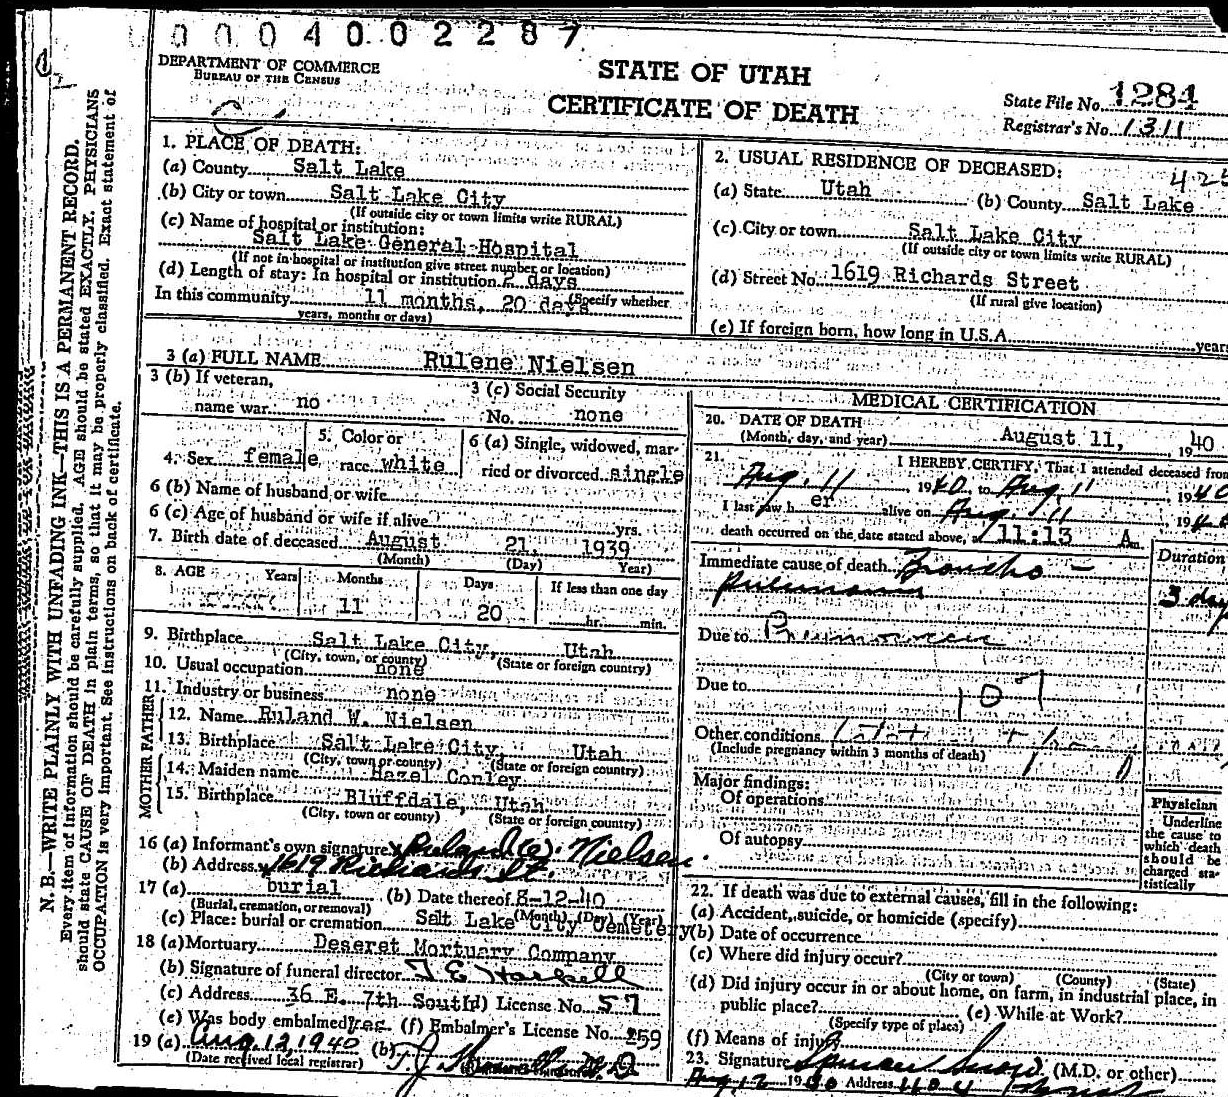 0004002287
DEPARTMENT OF COMMERCE
BUREAU OF THE CENSUS
STATE OF UTAH
CERTIFICATE OF DEATH
State File No. 1284
Registrar's No. 1311
N. B.—WRITE PLAINLY WITH UNFADING INK—THIS IS A PERMANENT RECORD.
Every item of information should be carefully supplied. AGE should be stated EXACTLY. PHYSICIANS
should state CAUSE OF DEATH in plain terms, so that it may be properly classified. Exact statement of
OCCUPATION is very important. See instructions on back of certificate.
1. PLACE OF DEATH:
(a) County Salt Lake
(b) City or town Salt Lake City
(If outside city or town limits write RURAL)
(c) Name of hospital or institution:
Salt Lake General Hospital
(If not in hospital or institution give street number or location)
(d) Length of stay: In hospital or institution 2 days
In this community 11 months, 20 days (Specify whether
years, months or days)
2. USUAL RESIDENCE OF DECEASED:
(a) State Utah (b) County Salt Lake
(c) City or town Salt Lake City
(If outside city or town limits write RURAL)
(d) Street No. 1619 Richards Street
(If rural give location)
(e) If foreign born, how long in U.S.A. years
3 (a) FULL NAME Rulene Nielsen
3 (b) If veteran,
name war no
3 (c) Social Security
No. none
4. Sex female
5. Color or
race white
6 (a) Single, widowed, mar-
ried or divorced single
6 (b) Name of husband or wife
6 (c) Age of husband or wife if alive yrs.
7. Birth date of deceased August 21, 1939
(Month) (Day) Year)
8. AGE Years Months Days If less than one day
11 20 hr. min.
9. Birthplace Salt Lake City, Utah
(City, town, or county) (State or foreign country)
10. Usual occupation none
11. Industry or business none
FATHER
12. Name Ruland W. Nielsen
13. Birthplace Salt Lake City, Utah
(City, town or county) (State or foreign country)
MOTHER
14. Maiden name Hazel Conley
15. Birthplace Bluffdale, Utah
(City, town or county) (State or foreign country)
16 (a) Informant's own signature x Ruland W. Nielsen.
(b) Address x 1619 Richards St.
17 (a) burial (b) Date thereof 8-12-40
(Burial, cremation, or removal) (Month) (Day) (Year)
(c) Place: burial or cremation Salt Lake City Cemetery
18 (a) Mortuary Deseret Mortuary Company
(b) Signature of funeral director
(c) Address 36 E. 7th South (d) License No. 57
(e) Was body embalmed? yes (f) Embalmer's License No. 259
19 (a) Aug. 12 1940 (b)
(Date received local registrar)
MEDICAL CERTIFICATION
20. DATE OF DEATH
(Month, day, and year) August 11, 1940
21. I HEREBY CERTIFY, That I attended deceased from
Aug. 11 1940, to Aug. 11 1940
I last saw her alive on Aug. 11, 1940
death occurred on the date stated above, at 11:13 A m.
Immediate cause of death Broncho-
pneumonia
Duration
3 days
Due to
Due to
107
Other conditions
(Include pregnancy within 3 months of death)
Major findings:
Of operations
Of autopsy
Physician
Underline
the cause to
which death
should be
charged sta-
tistically
22. If death was due to external causes, fill in the following:
(a) Accident, suicide, or homicide (specify)
(b) Date of occurrence
(c) Where did injury occur?
(City or town) (County) (State)
(d) Did injury occur in or about home, on farm, in industrial place, in
public place? (e) While at Work?
(Specify type of place)
(f) Means of injury
23. Signature (M.D. or other)
Aug. 12 1940 Address